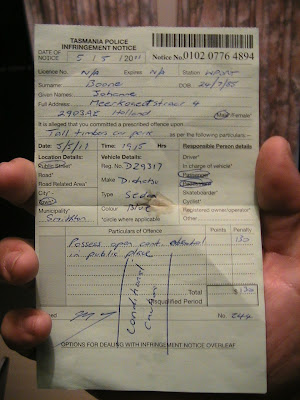 TASMANIA POLICE
INFRINGEMENT NOTICE
DATE OF NOTICE 5 / 5 / 2011 Notice No. 0102 0776 4894
Licence No. N/A Expires N/A Station
Surname: Boone DOB:
Given Names: Johanne
Full Address: 4
Holland Male Female
It is alleged that you committed a prescribed offence upon
Tall timbers car park as per the following particulars -
Date: 5/5/11 Time: 1915 Hrs
Location Details: Vehicle Details: Responsible Person details
Public Street* Reg. No. DZ9317 Driver*
Road* In charge of vehicle*
Road Related Area* Make Passenger*
City* - Type Sedan Pedestrian*
Town* Skateboarder
Municipality* Colour Blue Cyclist*
Smithton *circle where applicable Registered owner/operator*
Other
Particulars of Offence Points Penalty
Possess open cont. alcohol 130
in public place
Conditional
Caution
Total 130
Disqualified Period
Issued No. 244
OPTIONS FOR DEALING WITH INFRINGEMENT NOTICE OVERLEAF